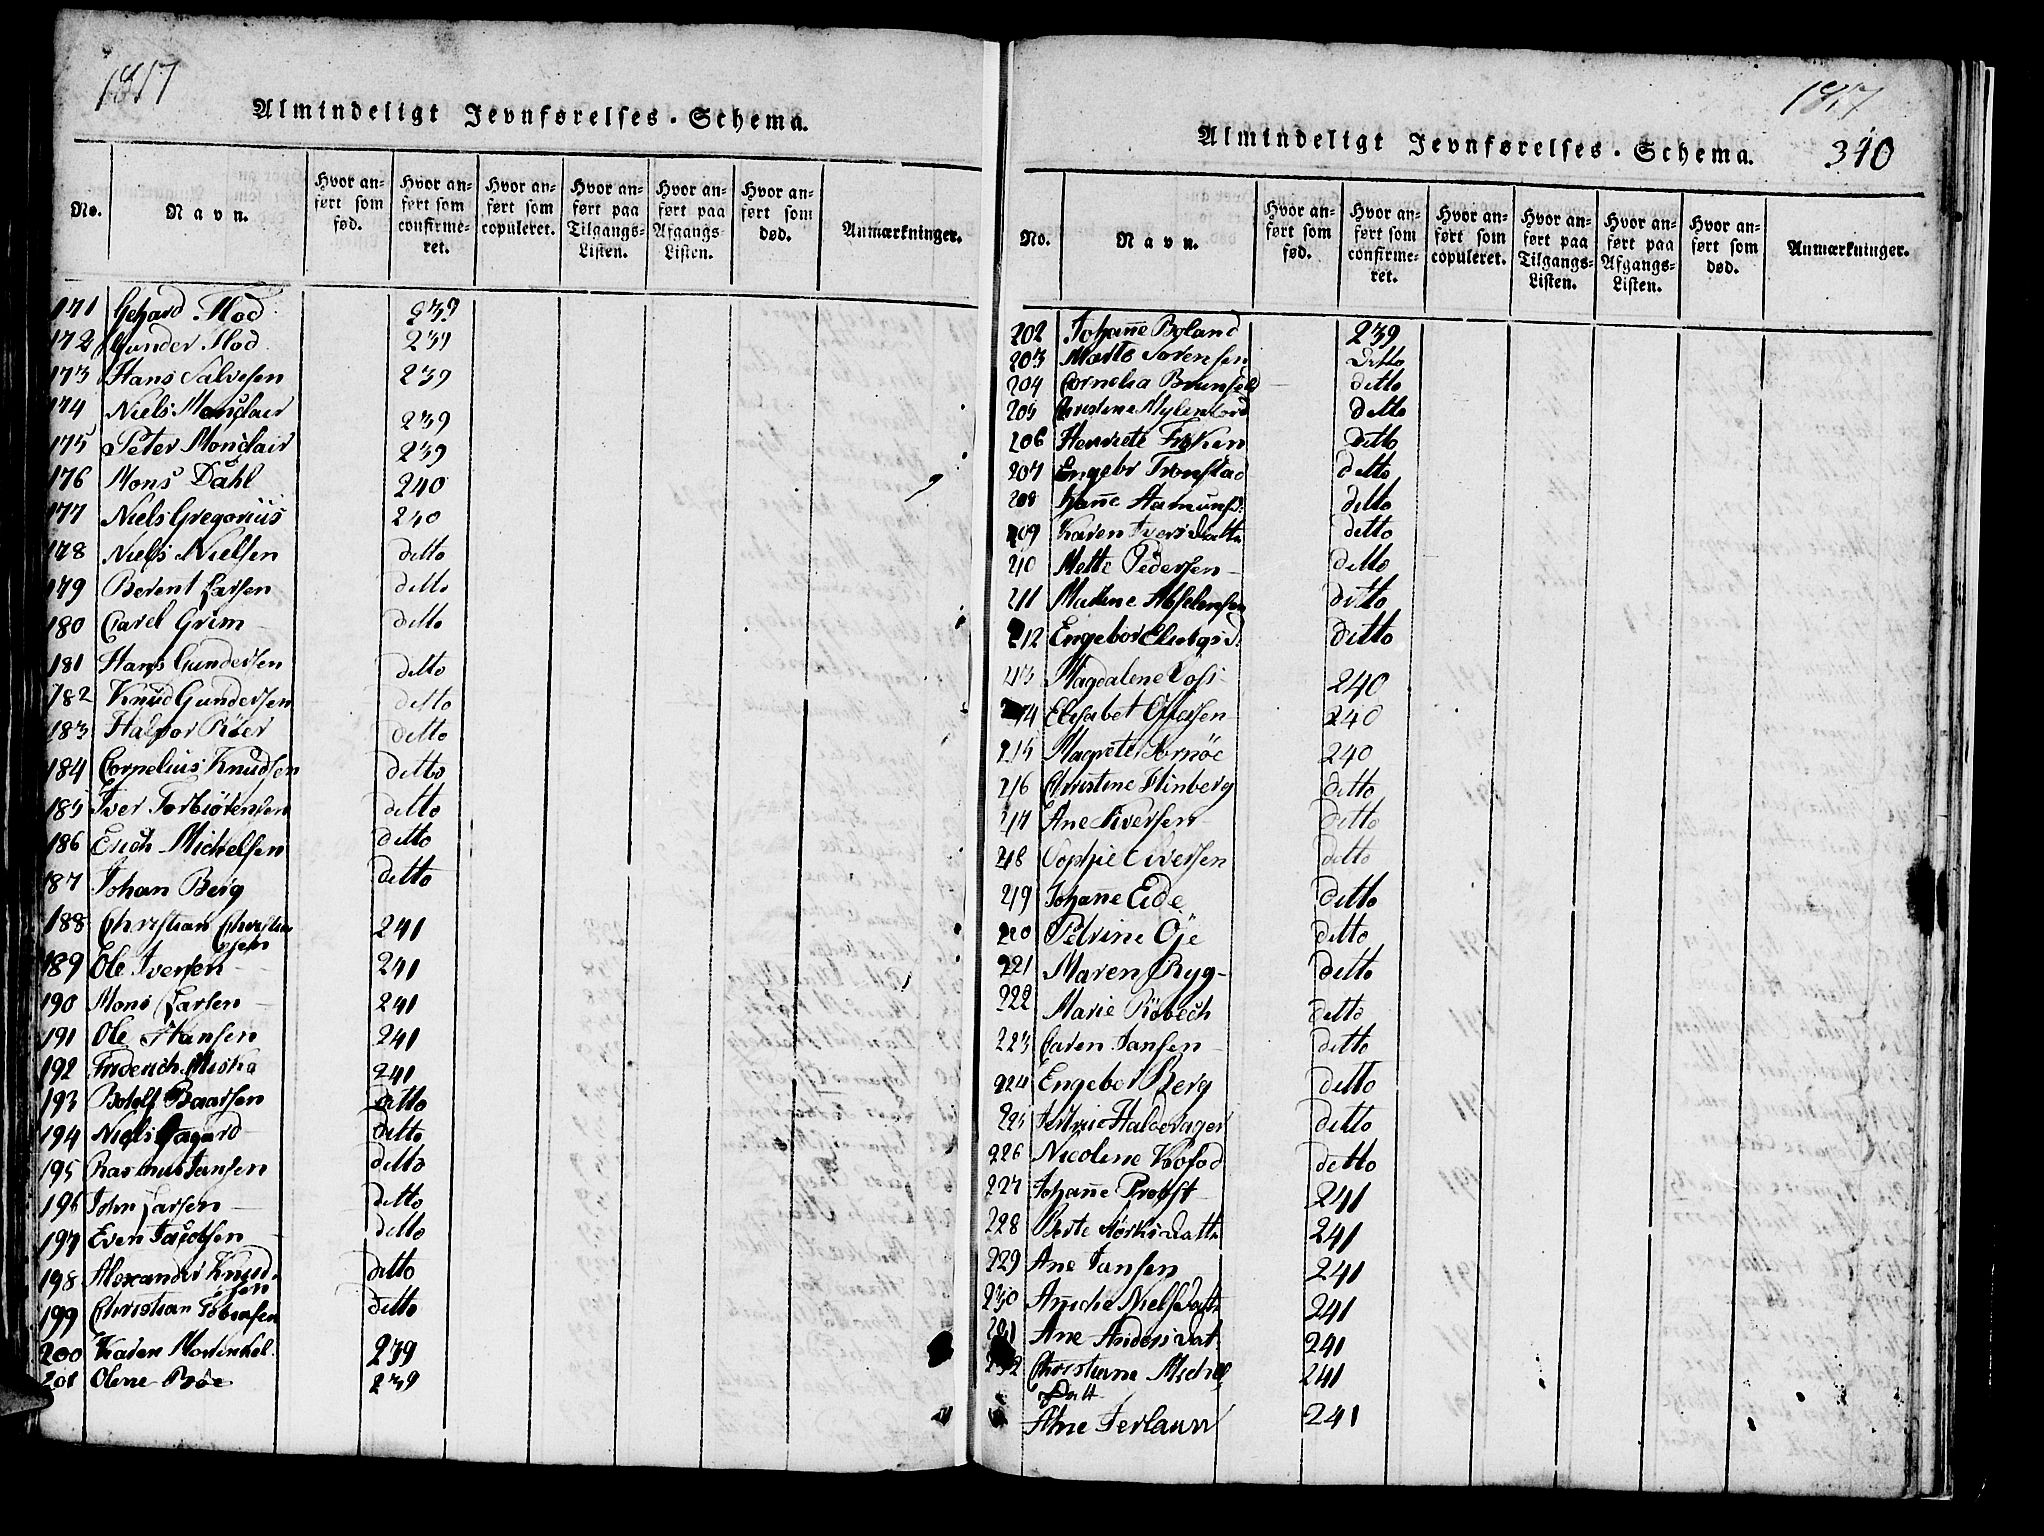 1817
Almindeligt Jevnførelses-Schema.
No.
Navn.
Hvor anført som fød.
Hvor anført som confirmeret.
Hvor anført som copuleret.
Hvor anført paa Tilgangs-Listen.
Hvor anført paa Afgangs-Listen.
Hvor anført som død.
Anmærkninger.
171 Gehard Flod 239
172 Gunder Flod 239
173 Hans Salvesen 239
174 Niels Monclair 239
175 Peter Monclair 239
176 Mons Dahl 240
177 Niels Gregorius 240
178 Niels Nielsen ditto
179 Berent Larsen ditto
180 Carel Grim ditto
181 Hans Gundersen ditto
182 Knud Gundersen ditto
183 Halvor Röer ditto
184 Cornelius Knudsen ditto
185 Iver Torbiörensen ditto
186 Erich Michelsen ditto
187 Johan Berg ditto
188 Christian Christiansen 241
189 Ole Iversen 241
190 Mons Larsen 241
191 Ole Hansen 241
192 Friderich 241
193 Botolf Baarsen ditto
194 Niels ditto
195 Rasmus Jansen ditto
196 John Larsen ditto
197 Even Jacobsen ditto
198 Alexander Knudsen ditto
199 Christian Tobiasen ditto
200 Karen Mortinkel 239
201 Olene Böe 239
1817
340
Almindeligt Jevnførelses-Schema.
No.
Navn.
Hvor anført som fød.
Hvor anført som confirmeret.
Hvor anført som copuleret.
Hvor anført paa Tilgangs-Listen.
Hvor anført paa Afgangs-Listen.
Hvor anført som død.
Anmærkninger.
202 Johanne Boland 239
203 Marte Sörensen ditto
204 Cornelia ditto
205 Christine ditto
206 Henriete ditto
207 Engebor Tronstad ditto
208 Hanne Aamunsd. ditto
209 Karen Iversdatter ditto
210 Mette Pedersen ditto
211 Malene Abselonsen ditto
212 Engebor ditto
213 Magdalene 240
214 Elisabet 240
215 Magrete Tornöe 240
216 Christine ditto
217 Ane Iversen ditto
218 Sophie Iversen ditto
219 Johanne Eide ditto
220 Petrine Öje ditto
221 Maren Ryg ditto
222 Marie Röbech ditto
223 Caren Jansen ditto
224 Engebor Berg ditto
225 Haldorager ditto
226 Nicoline Kofod ditto
227 Johanne Probst 241
228 Berte 241
229 Ane Jansen 241
230 Nielsdatter 241
231 Ane Andersdat 241
232 Christiane Michelsdatt 241
Ane Terlaun 241